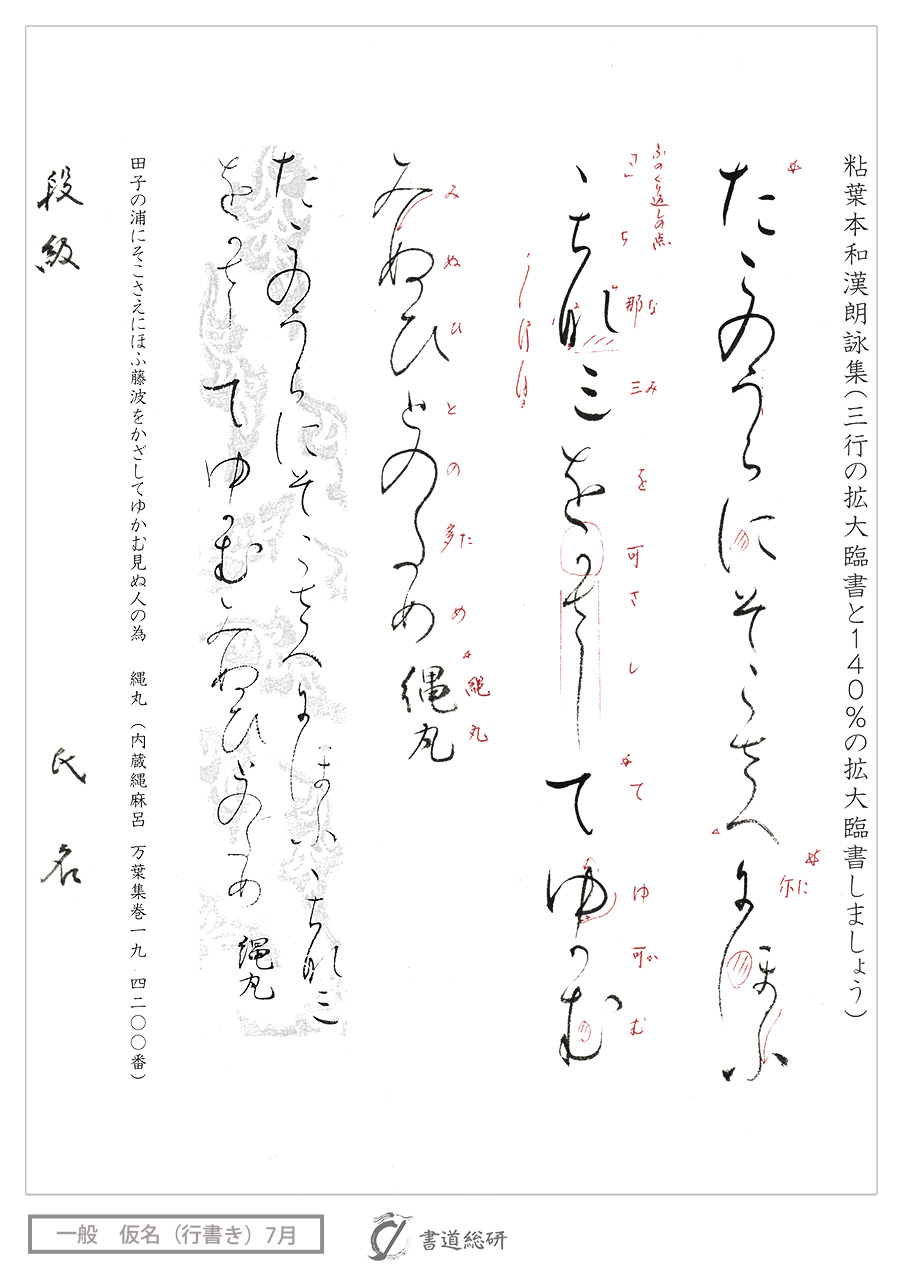 粘葉本和漢朗詠集(三行の拡大臨書と140%の拡大臨書しましょう)
たこのうらにそこさへ尓ほふ
尓に
ふのくり返しの点
ち
那な
三み
を
可
さ
し
て
ゆ
可か
む
ゝち那三を可さしてゆ可む
み
ぬ
ひ
と
の
多た
め
縄
丸
みぬひとの多め 縄丸
たこのうらにそこさへ尓ほふゝち那三
を可さしてゆ可むみぬひとの多め
縄丸
田子の浦にそこさえにほふ藤波をかざしてゆかむ見ぬ人の為 縄丸 (内蔵縄麻呂 万葉集巻一九 四二〇〇番)
段級 氏名
一般 仮名(行書き)7月
書道総研